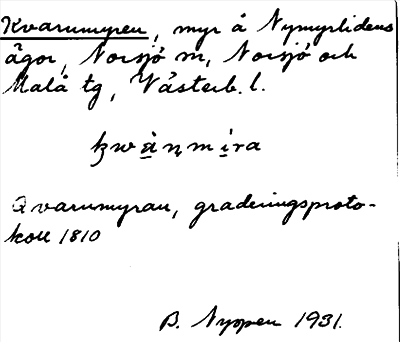 Kvarnmyren, myr å Nymyrlidens
ägor, Norsjö sn, Norsjö och
Malå tg, Västerb. l.
Qvarnmyran, graderingsproto-
koll 1810
B. Nyopen 1931.